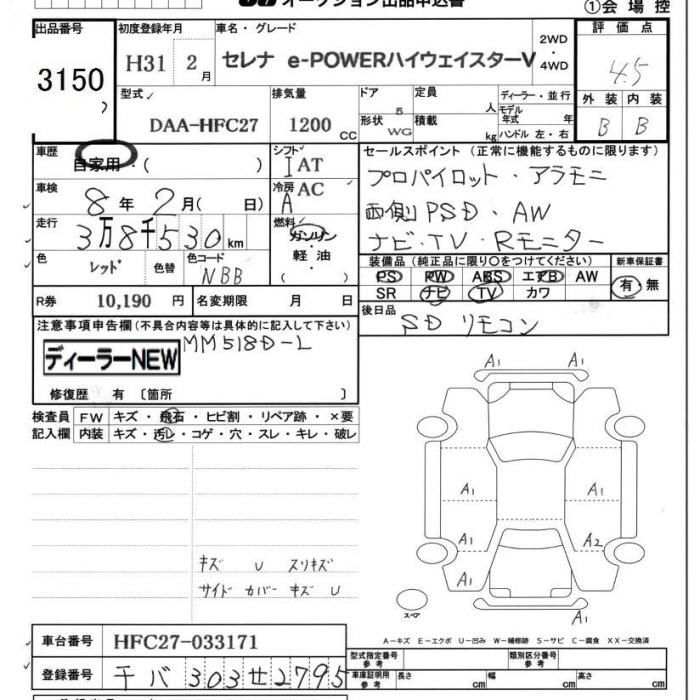 オークション出品申込書
①会場控
出品番号
3150
初度登録年月
H31 2月
車名・グレード
セレナ e-POWERハイウェイスターV
2WD・4WD
評価点
4.5
外装 内装
B B
型式
DAA-HFC27
排気量
1200 CC
ドア 5
形状 WG
定員 人
積載 kg
ディーラー・並行
モデル年式 年
ハンドル 左・右
車歴
自家用・( )
シフト
IAT
車検
8年 2月( 日)
冷房 AC
A
走行
3万8千530km
燃料
ガソリン・軽油・( )
色
レッド
色替
色コード
NBB
R券 10,190 円
名変期限 月 日
セールスポイント(正常に機能するものに限ります)
プロパイロット・アラモニ
両側PSD・AW
ナビ・TV・Rモニター
装備品(純正品に限り○をつけてください)
PS PW ABS エアB AW
SR ナビ TV カワ
新車保証書
有・無
後日品
SD リモコン
注意事項申告欄(不具合内容等は具体的に記入して下さい)
ディーラーNEW
MM518D-L
修復歴 有 〔箇所 〕
検査員記入欄
FW キズ・飛石・ヒビ割・リペア跡・×要
内装 キズ・汚レ・コゲ・穴・スレ・キレ・破レ
キズ U スリキズ
サイド カバー キズ U
A1
A1
A1
A1
A1
A2
A1
A1
A1
スペア
A-キズ E-エクボ U-凹み W-補修跡 S-サビ C-腐食 XX-交換済
車台番号 HFC27-033171
登録番号 千バ 303 せ 2795
型式指定番号 参考
類別区分番号 参考
車庫証明用 参考
長さ cm 幅 cm 高さ cm